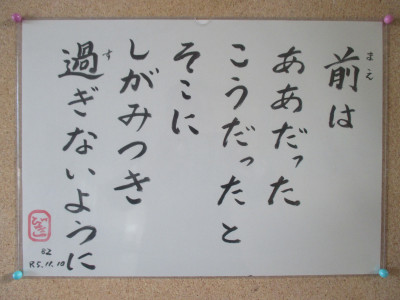 前は
まえ
ああだった
こうだったと
そこに
しがみつき
過ぎないように
す
82
R5.11.10